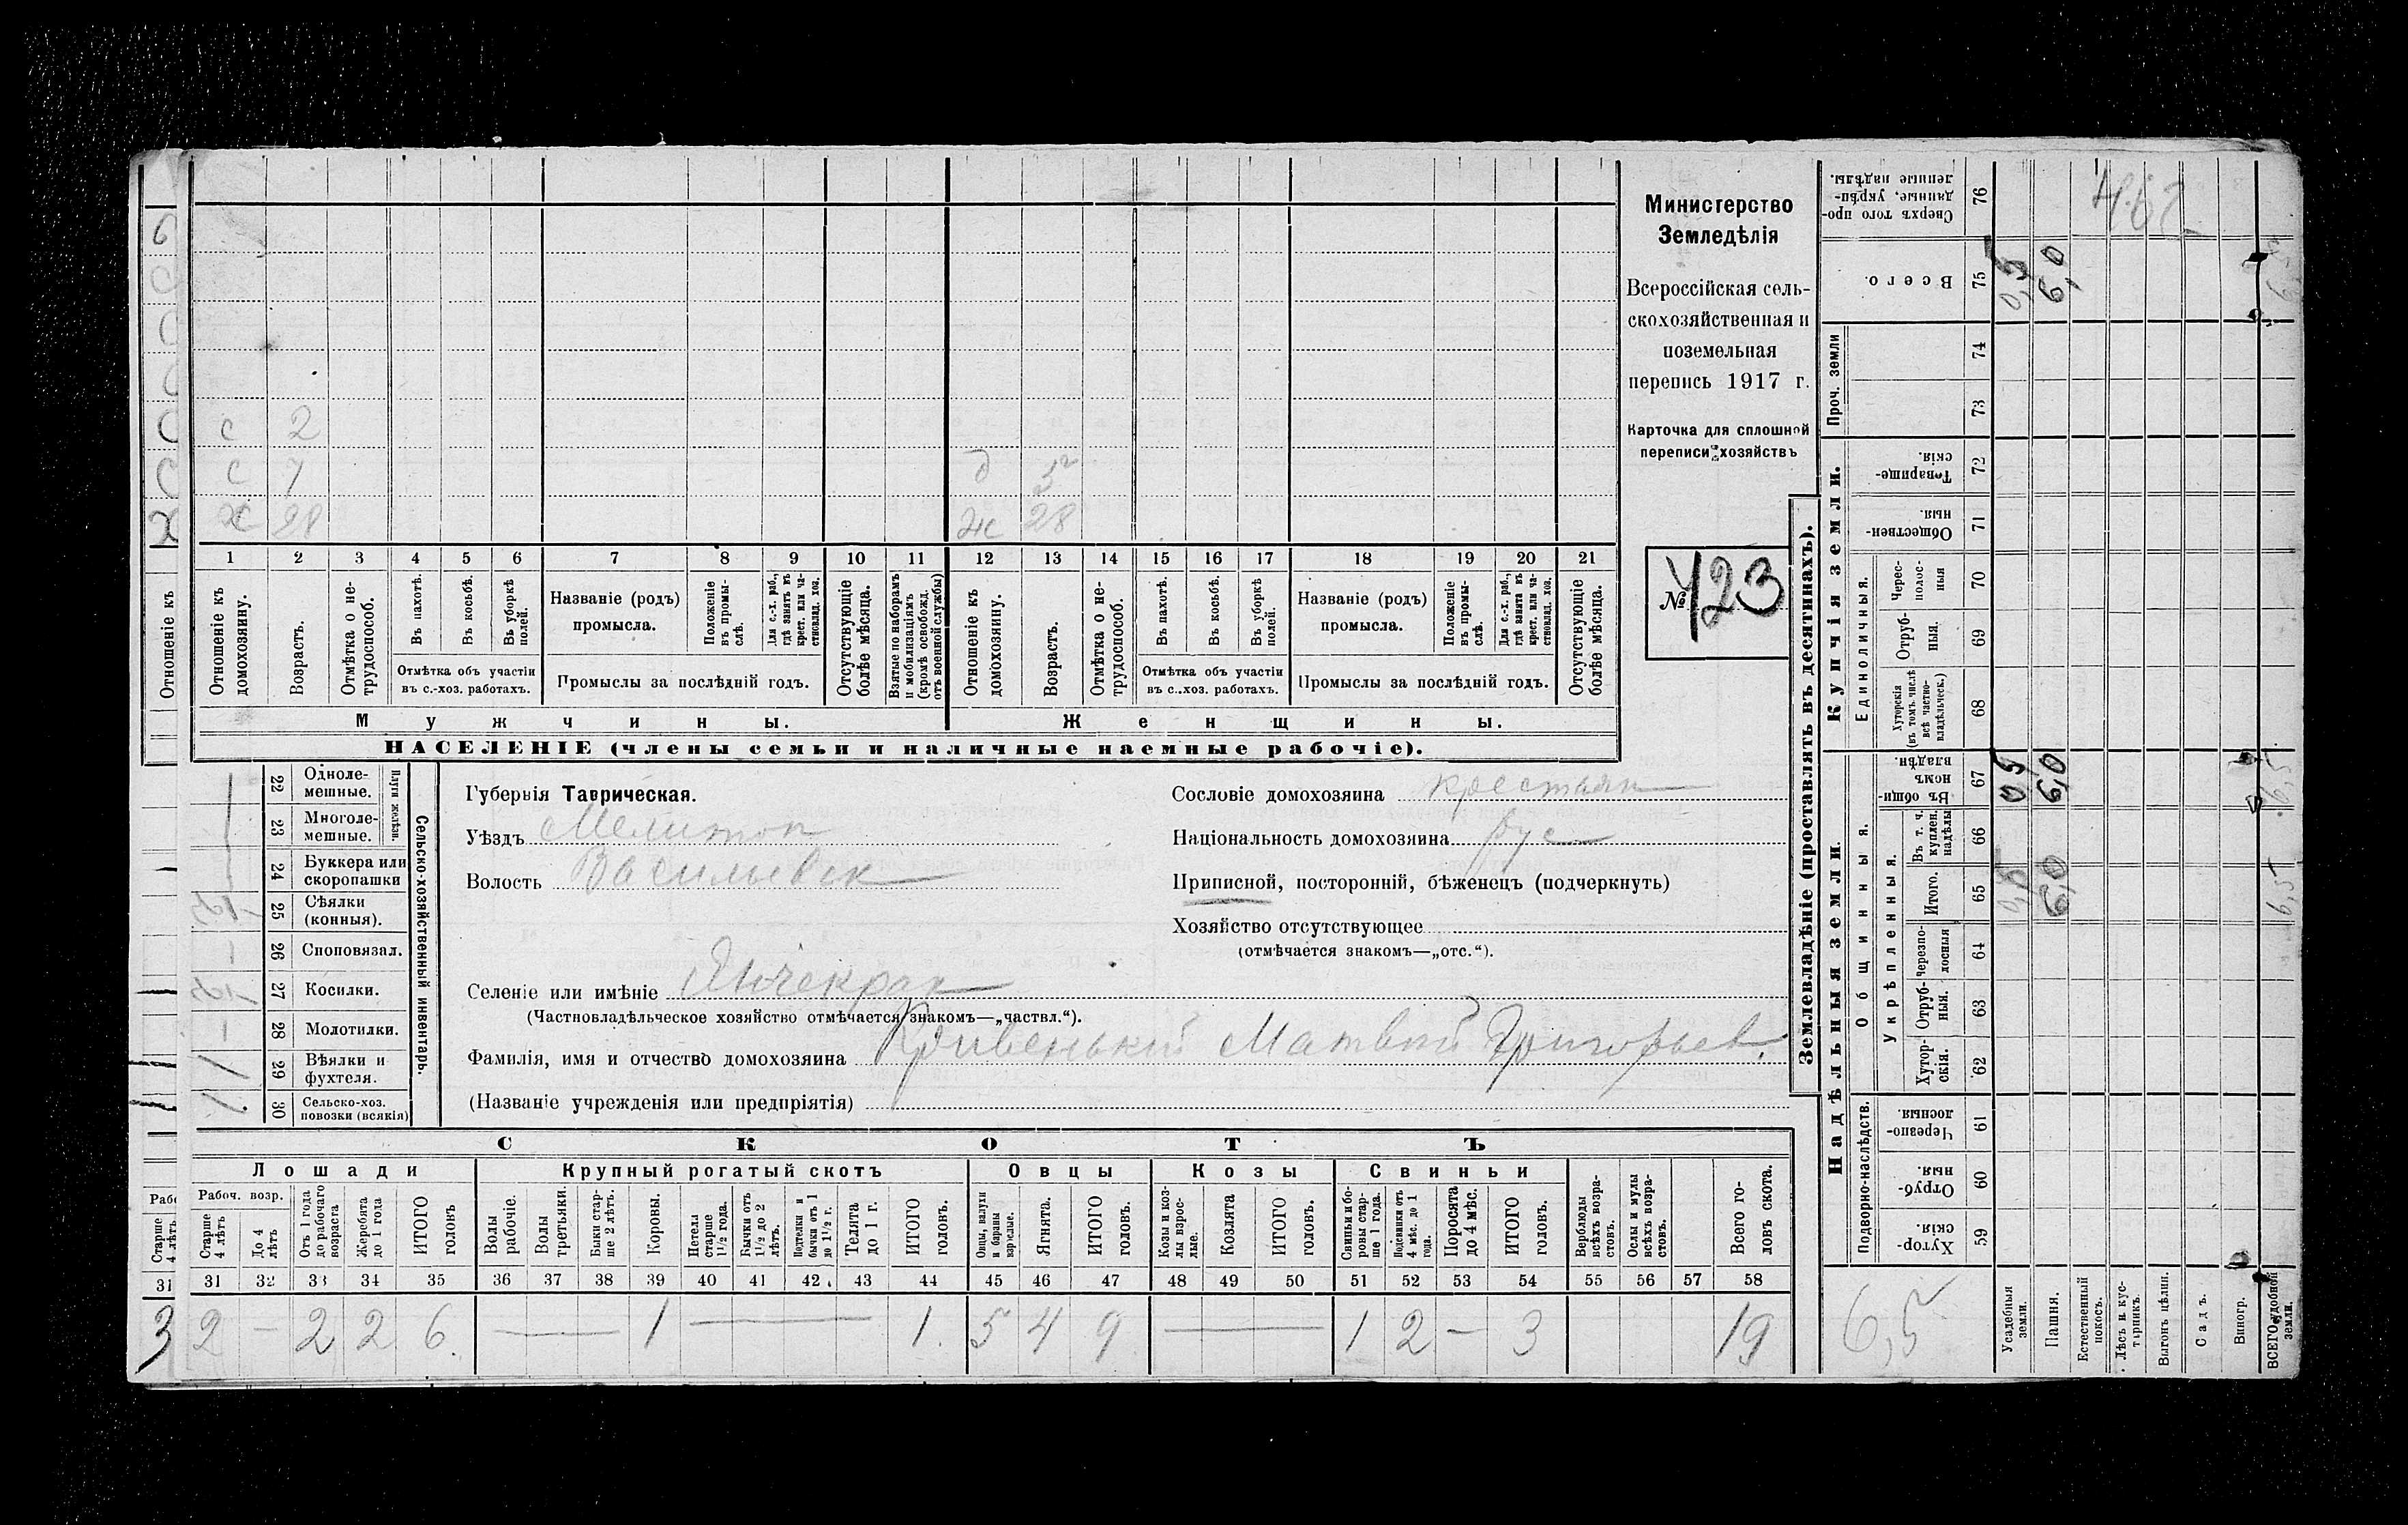 Министерство
Земледѣлія
Всероссійская сель-
скохозяйственная и
поземельная
перепись 1917 г.
Карточка для сплошной
переписи хозяйствъ
№ 423
с 2
с 7 д 5
х 28 ж 28
1 2 3 4 5 6 7 8 9 10 11 12 13 14 15 16 17 18 19 20 21
Отношеніе къ
Отношеніе къ домохозяину.
Возрастъ.
Отмѣтка о не-трудоспособ.
Въ пахотѣ.
Въ косьбѣ.
Въ уборкѣ полей.
Отмѣтка объ участіи въ с.-хоз. работахъ.
Названіе (родъ) промысла.
Положеніе въ промы-слѣ.
Для с.-х. раб., гдѣ занятъ въ крест. или ча-стновлад. хоз.
Промыслы за послѣдній годъ.
Отсутствующіе болѣе мѣсяца.
Взятые по наборамъ и мобилизаціямъ (кромѣ освобожд. отъ военной службы)
Отношеніе къ домохозяину.
Возрастъ.
Отмѣтка о не-трудоспособ.
Въ пахотѣ.
Въ косьбѣ.
Въ уборкѣ полей.
Отмѣтка объ участіи въ с.-хоз. работахъ.
Названіе (родъ) промысла.
Положеніе въ промы-слѣ.
Для с.-х. раб., гдѣ занята въ крест. или ча-стновлад. хоз.
Промыслы за послѣдній годъ.
Отсутствующіе болѣе мѣсяца.
Мужчины. Женщины.
НАСЕЛЕНІЕ (члены семьи и наличные наемные рабочіе).
22 Одноле-мешные.
23 Многоле-мешные.
Плуги желѣзн.
24 Буккера или скоропашки
25 Сѣялки (конныя).
26 Сноповязал.
27 Косилки.
28 Молотилки.
29 Вѣялки и фухтеля.
30 Сельско-хоз. повозки (всякія)
Сельско-хозяйственный инвентарь.
Губернія Таврическая.
Уѣздъ Мелитоп
Волость Васильевск
Селеніе или имѣніе Янчекрак
(Частновладѣльческое хозяйство отмѣчается знакомъ—„частвл.“).
Фамилія, имя и отчество домохозяина Кривенький Матвей Григорьев.
(Названіе учрежденія или предпріятія)
Сословіе домохозяина крестьян
Національность домохозяина рус
Приписной, посторонній, бѣженецъ (подчеркнуть)
Хозяйство отсутствующее
(отмѣчается знакомъ—„отс.“).
СКОТЪ
Лошади Крупный рогатый скотъ Овцы Козы Свиньи
Рабоч. возр.
Старше 4 лѣтъ
До 4 лѣтъ
Отъ 1 года до рабочаго возраста
Жеребята до 1 года
ИТОГО головъ
Волы рабочіе.
Волы третьяки.
Быки стар-ше 2 лѣтъ.
Коровы.
Петелы старше 1½ года.
Бычки отъ 1½ до 2 лѣтъ.
Подтелки и бычки отъ 1 до 1½ г.
Телята до 1 г.
ИТОГО головъ.
Овцы, валухи и бараны взрослые.
Ягнята.
ИТОГО головъ.
Козы и коз-лы взрос-лые.
Козлята
ИТОГО головъ.
Свиньи и бо-ровы стар-ше 1 года.
Подсвинки отъ 4 мѣс. до 1 года.
Поросята до 4 мѣс.
ИТОГО головъ.
Верблюды всѣхъ возра-стовъ.
Ослы и мулы всѣхъ возра-стовъ.
Всего го-ловъ скота.
31 31 32 33 34 35 36 37 38 39 40 41 42 43 44 45 46 47 48 49 50 51 52 53 54 55 56 57 58
3 2 — 2 2 6. — 1 — 1. 5 4 9 — 1 2 — 3 19
Землевладѣніе (проставлять въ десятинахъ).
Купчія земли.
Надѣльныя земли.
Сверхъ того про-данные, укрѣп-ленные надѣлы. 76
Всего. 75 0,5 6,0
Проч. земли 74 73
Товарище-скія. 72
Обществен-ныя 71
Единоличныя.
Черес-полос-ныя 70
Отруб-ныя. 69
Хуторскія (въ томъ числѣ всѣ частно-владѣльческ.) 68
Общинныя.
Въ общин-номъ владѣн. 67 0,5 6,0 6,5
Укрѣпленныя.
Въ т. ч. куплен. надѣлы 66
Итого. 65 0,5 6,0 6,5
Черезпо-лосныя 64
Отруб-ныя. 63
Хутор-скія. 62
Подворно-наслѣдств.
Черезпо-лосныя. 61
Отруб-ныя. 60
Хутор-скія. 59
6,5
Усадебныя земли.
Пашня.
Естественный покосъ.
Лѣсъ и кус-тарникъ.
Выгонъ цѣлин.
Садъ.
Виногр.
ВСЕГО удобной земли.